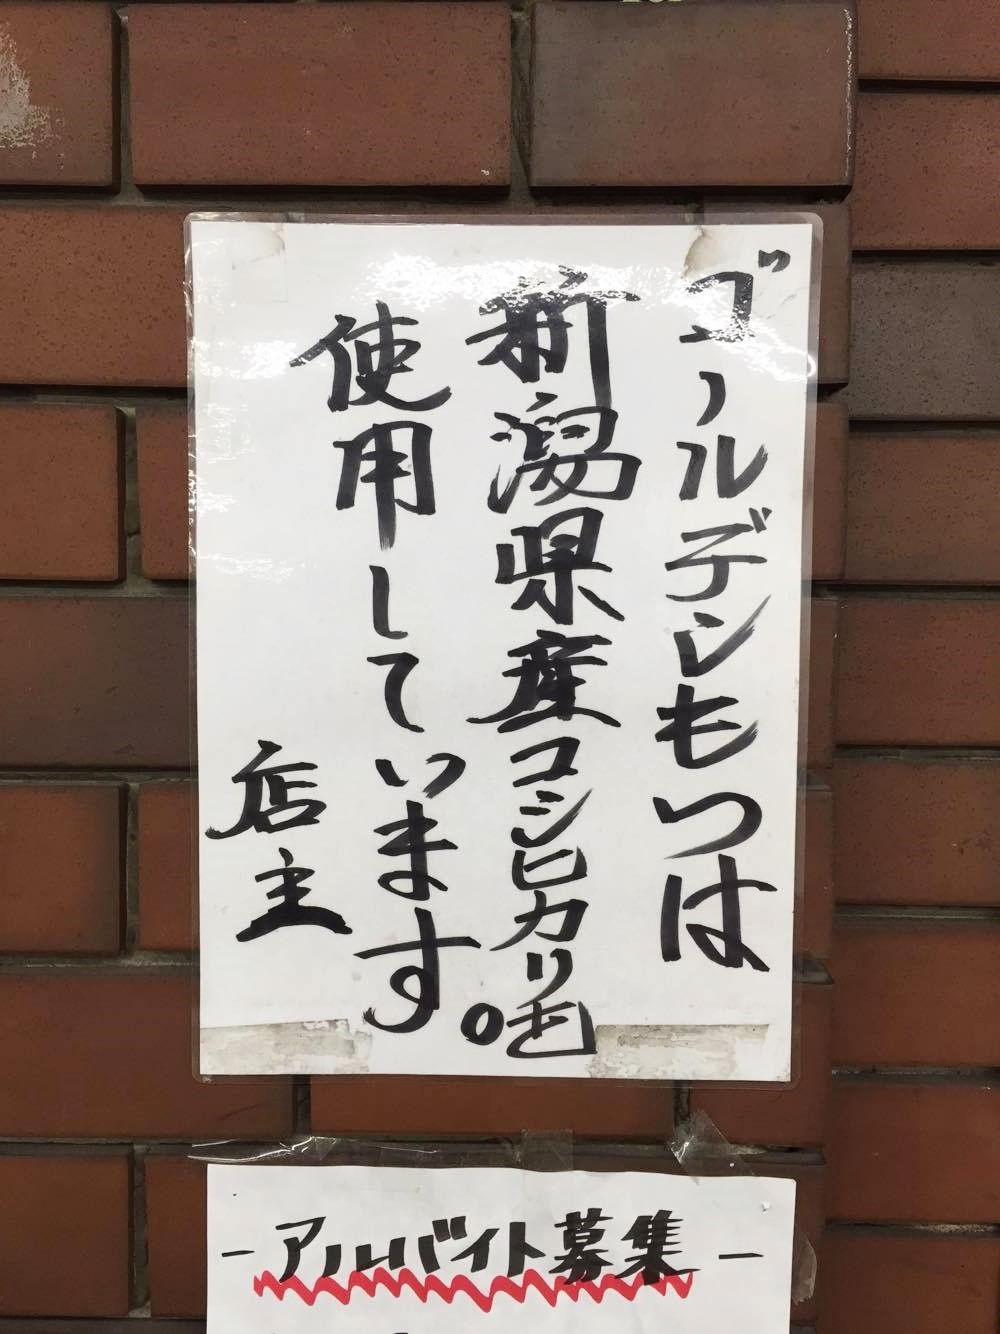 ゴールデンもつは
新潟県産コシヒカリも
使用しています。
店主
-アルバイト募集-